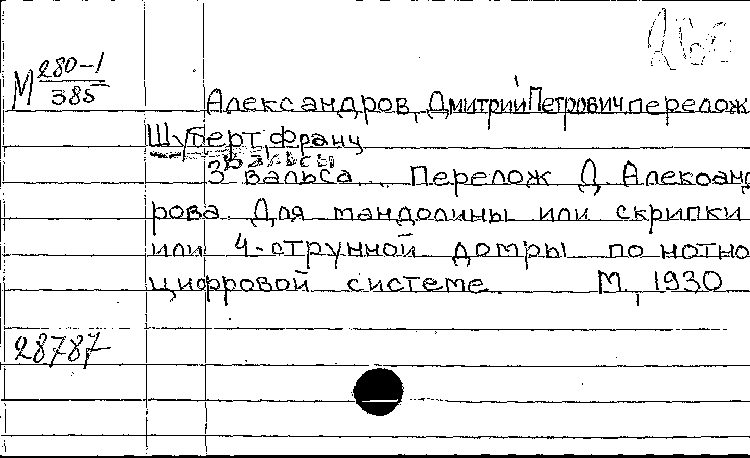 М 280-1
385
Александров, Дмитрий Петрович перелож
Шуберт, Франц
Вальсы
3 вальса.. Перелож Д. Александ
рова. Для мандолины или скрипки
или 4-струнной домры по нотно
цифровой системе М., 1930
28787